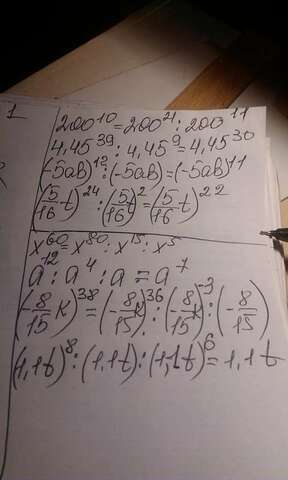 1
200^10 = 200^21 : 200^11
4,45^39 : 4,45^9 = 4,45^30
(-5ab)^12 : (-5ab) = (-5ab)^11
(5/16 t)^24 : (5/16 t)^2 = (5/16 t)^22
x^60 = x^80 : x^15 : x^5
a^12 : a^4 : a = a^7
(-8/15 k)^38 = (-8/15 k)^36 : (-8/15 k)^-3 : (-8/15)
(1,1t)^8 : (1,1t) : (1,1t)^6 = 1,1t